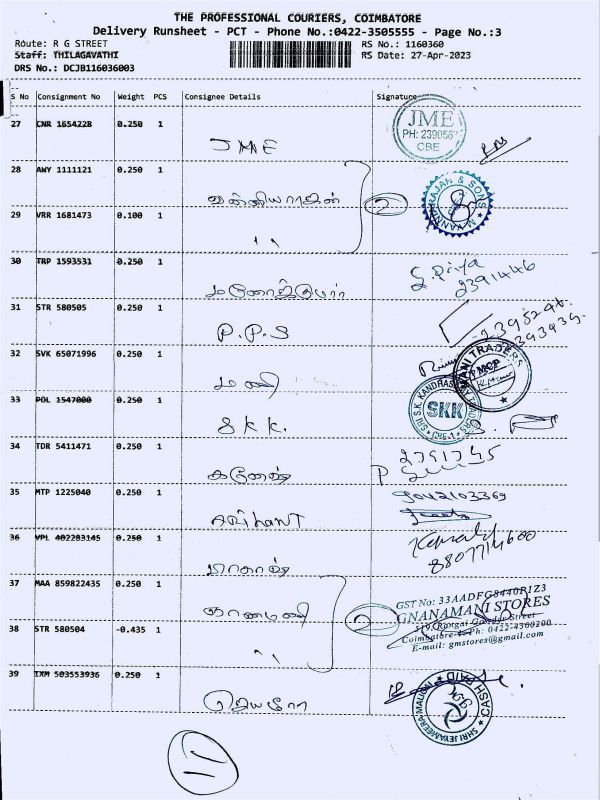 THE PROFESSIONAL COURIERS, COIMBATORE
Delivery Runsheet - PCT - Phone No.:0422-3505555 - Page No.:3
Route: R G STREET RS No.: 1160360
Staff: THILAGAVATHI RS Date: 27-Apr-2023
DRS No.: DCJB116036003
S No Consignment No Weight PCS Consignee Details Signature
27 CNR 1654228 0.250 1
JME
JME
PH: 239056
CBE
28 AWY 1111121 0.250 1
2
29 VRR 1681473 0.100 1
"
30 TRP 1593531 0.250 1
S. Priya
2391446
31 STR 580505 0.250 1
P.P.S
32 SVK 65071996 0.250 1
மணி
MANI TRADERS
33 POL 1547000 0.250 1
SKK.
SRI S.K. KANDHAS
SKK
CBE-1
34 TDR 5411471 0.250 1
கணேஷ்
35 MTP 1225040 0.250 1
ARIHANT
9042103369
36 VPL 402283145 0.250 1
பிரகாஷ்
8807714600
37 MAA 859822435 0.250 1
ஞானமணி
2
GST No: 33AADFG8440B1Z3
GNANAMANI STORES
Street
Coimbatore-1. Ph: 0422-4360200
E-mail: gmstores@gmail.com
38 STR 580504 -0.435 1
"
39 IXM 503553936 0.250 1
CASH PAID
SHRI JEYAMEERA MALIGAI
11